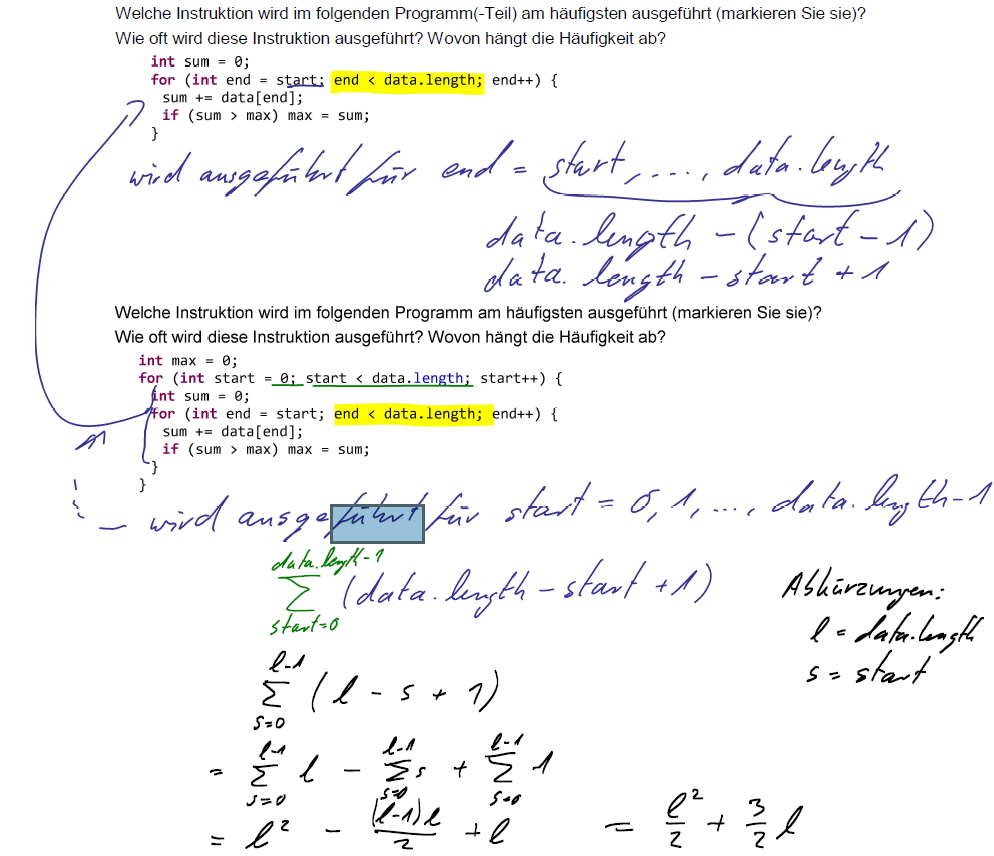 Welche Instruktion wird im folgenden Programm(-Teil) am häufigsten ausgeführt (markieren Sie sie)?
Wie oft wird diese Instruktion ausgeführt? Wovon hängt die Häufigkeit ab?
int sum = 0;
for (int end = start; end < data.length; end++) {
sum += data[end];
if (sum > max) max = sum;
}
wird ausgeführt für end = start, ..., data.length
data.length - (start - 1)
data.length - start + 1
Welche Instruktion wird im folgenden Programm am häufigsten ausgeführt (markieren Sie sie)?
Wie oft wird diese Instruktion ausgeführt? Wovon hängt die Häufigkeit ab?
int max = 0;
for (int start = 0; start < data.length; start++) {
int sum = 0;
for (int end = start; end < data.length; end++) {
sum += data[end];
if (sum > max) max = sum;
}
}
- wird ausgeführt für start = 0, 1, ..., data.length-1
data.length-1
∑ (data.length - start + 1)
start=0
Abkürzungen:
l = data.length
s = start
l-1
∑ (l - s + 1)
s=0
l-1 l-1 l-1
= ∑ l - ∑ s + ∑ 1
s=0 s=0 s=0
= l² - (l-1)l/2 + l = l²/2 + 3/2 l